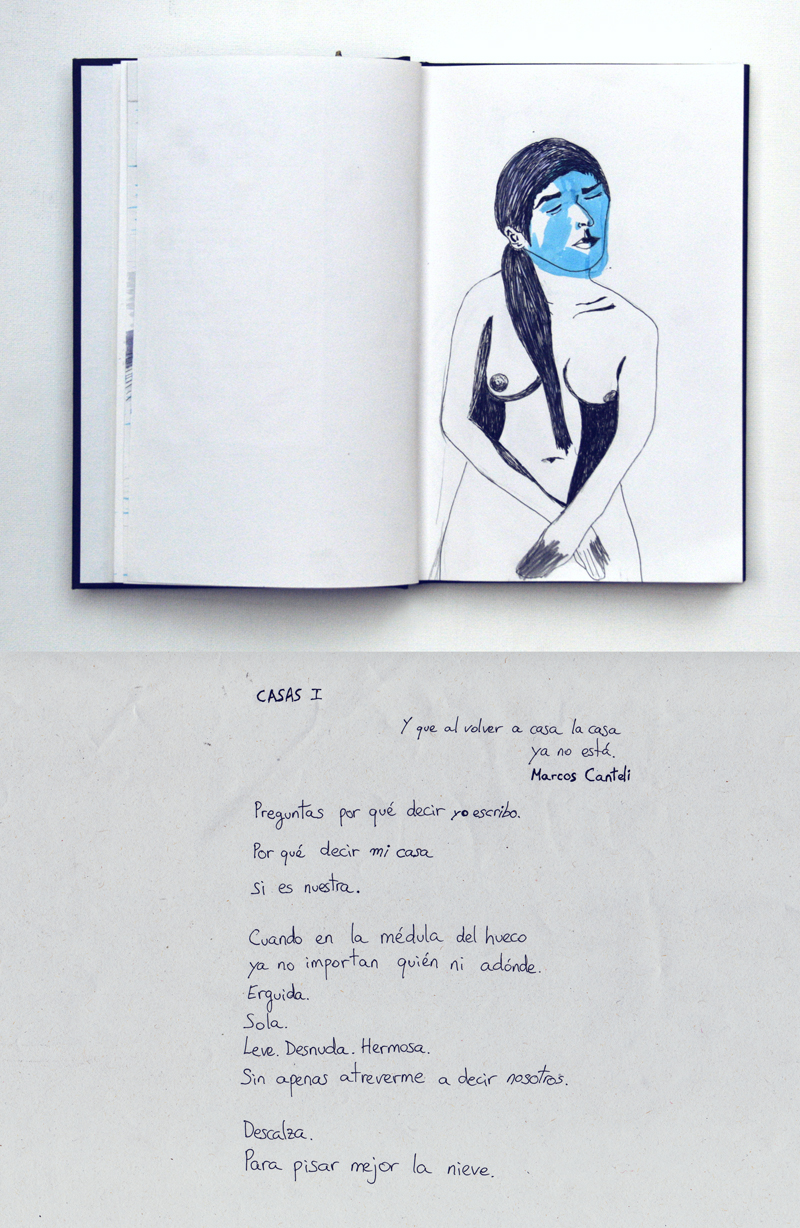 CASAS I
Y que al volver a casa la casa
ya no está.
Marcos Canteli
Preguntas por qué decir yo escribo.
Por qué decir mi casa
si es nuestra.
Cuando en la médula del hueco
ya no importan quién ni adónde.
Erguida.
Sola.
Leve. Desnuda. Hermosa.
Sin apenas atreverme a decir nosotros.
Descalza.
Para pisar mejor la nieve.